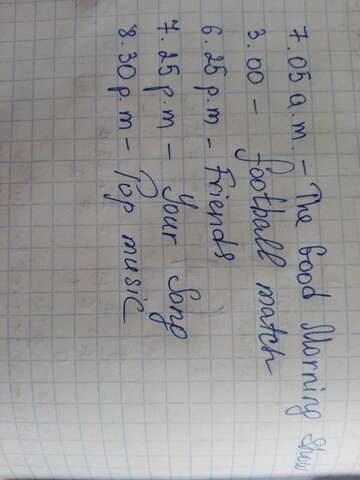 7.05 a.m. – The Good Morning Show
3.00 – football match
6.25 p.m – Friends
7.25 p.m – Your Song
8.30 p.m – Pop music